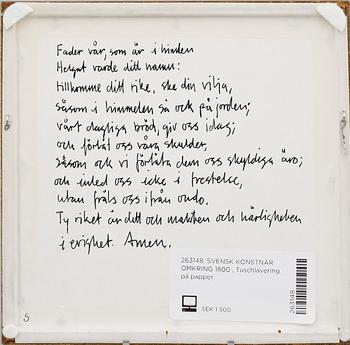 Fader vår, som är i himlen
Helgat varde ditt namn:
tillkomme ditt rike, ske din vilja,
såsom i himmelen så ock på jorden;
vårt dagliga bröd, giv oss idag;
och förlåt oss våra skulder,
såsom ock vi förlåta dem oss skyldiga äro;
och inled oss icke i frestelse,
utan fräls oss ifrån ondo.
Ty riket är ditt och makten och härligheten
i evighet. Amen.
263148. SVENSK KONSTNÄR
OMKRING 1800 , Tuschlavering
på papper.
SEK 1 500
263148
5